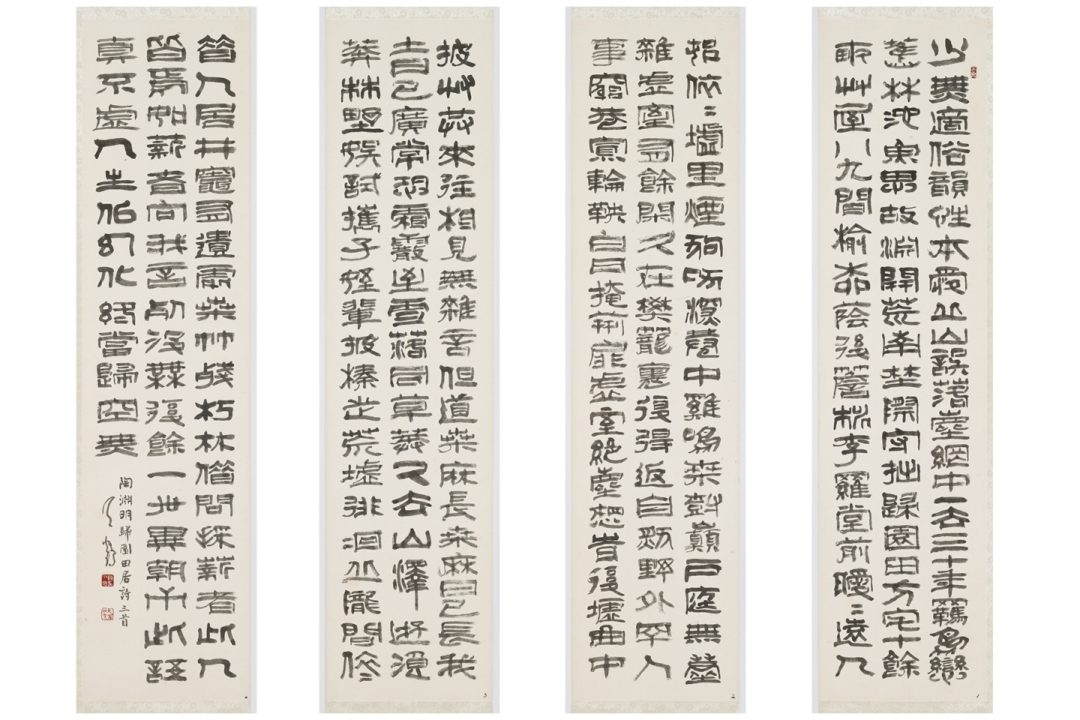 少無適俗韻性本愛丘山誤落塵網中一去三十年羈鳥戀
舊林池魚思故淵開荒南埜際守拙歸園田方宅十餘
畝艸屋八九間榆柳蔭後簷桃李羅堂前曖〻遠人
邨依〻墟里煙狗吠深巷中雞鳴桑樹巔戶庭無塵
雜虛室有餘閒久在樊籠裏復得返自然野外罕人
事窮巷寡輪鞅白日掩荊扉虛室絕塵想時復墟曲中
披艸共來往相見無雜言但道桑麻長桑麻日已長我
土日已廣常恐霜霰至零落同草莽久去山澤遊浪
莽林野娛試攜子姪輩披榛步荒墟徘徊丘隴間依
昔人居井竈有遺處桑竹殘朽株借問採薪者此人
皆焉如薪者向我言死沒無復餘一世異朝市此語
真不虛人生似幻化終當歸空無
陶淵明歸園田居詩三首